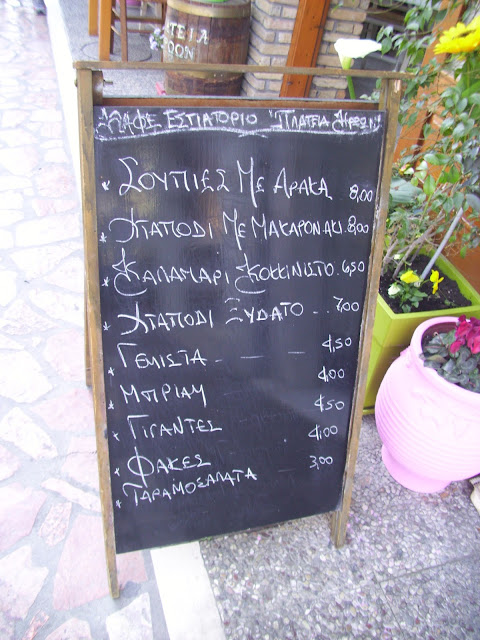 ΤΕΙΑ
ΚΑΦΕ ΕΣΤΙΑΤΟΡΙΟ "ΠΛΑΤΕΙΑ ΗΡΩΩΝ"
* ΣΟΥΠΙΕΣ ΜΕ ΑΡΑΚΑ 8,00
* ΧΤΑΠΟΔΙ ΜΕ ΜΑΚΑΡΟΝΑΚΙ 8,00
* ΚΑΛΑΜΑΡΙ ΚΟΚΚΙΝΙΣΤΟ 6,50
* ΧΤΑΠΟΔΙ ΞΥΔΑΤΟ .. 7,00
* ΓΕΜΙΣΤΑ - — — 4,50
* ΜΠΡΙΑΜ 4,00
* ΓΙΓΑΝΤΕΣ 4,50
* ΦΑΚΕΣ 4,00
* ΤΑΡΑΜΟΣΑΛΑΤΑ 3,00